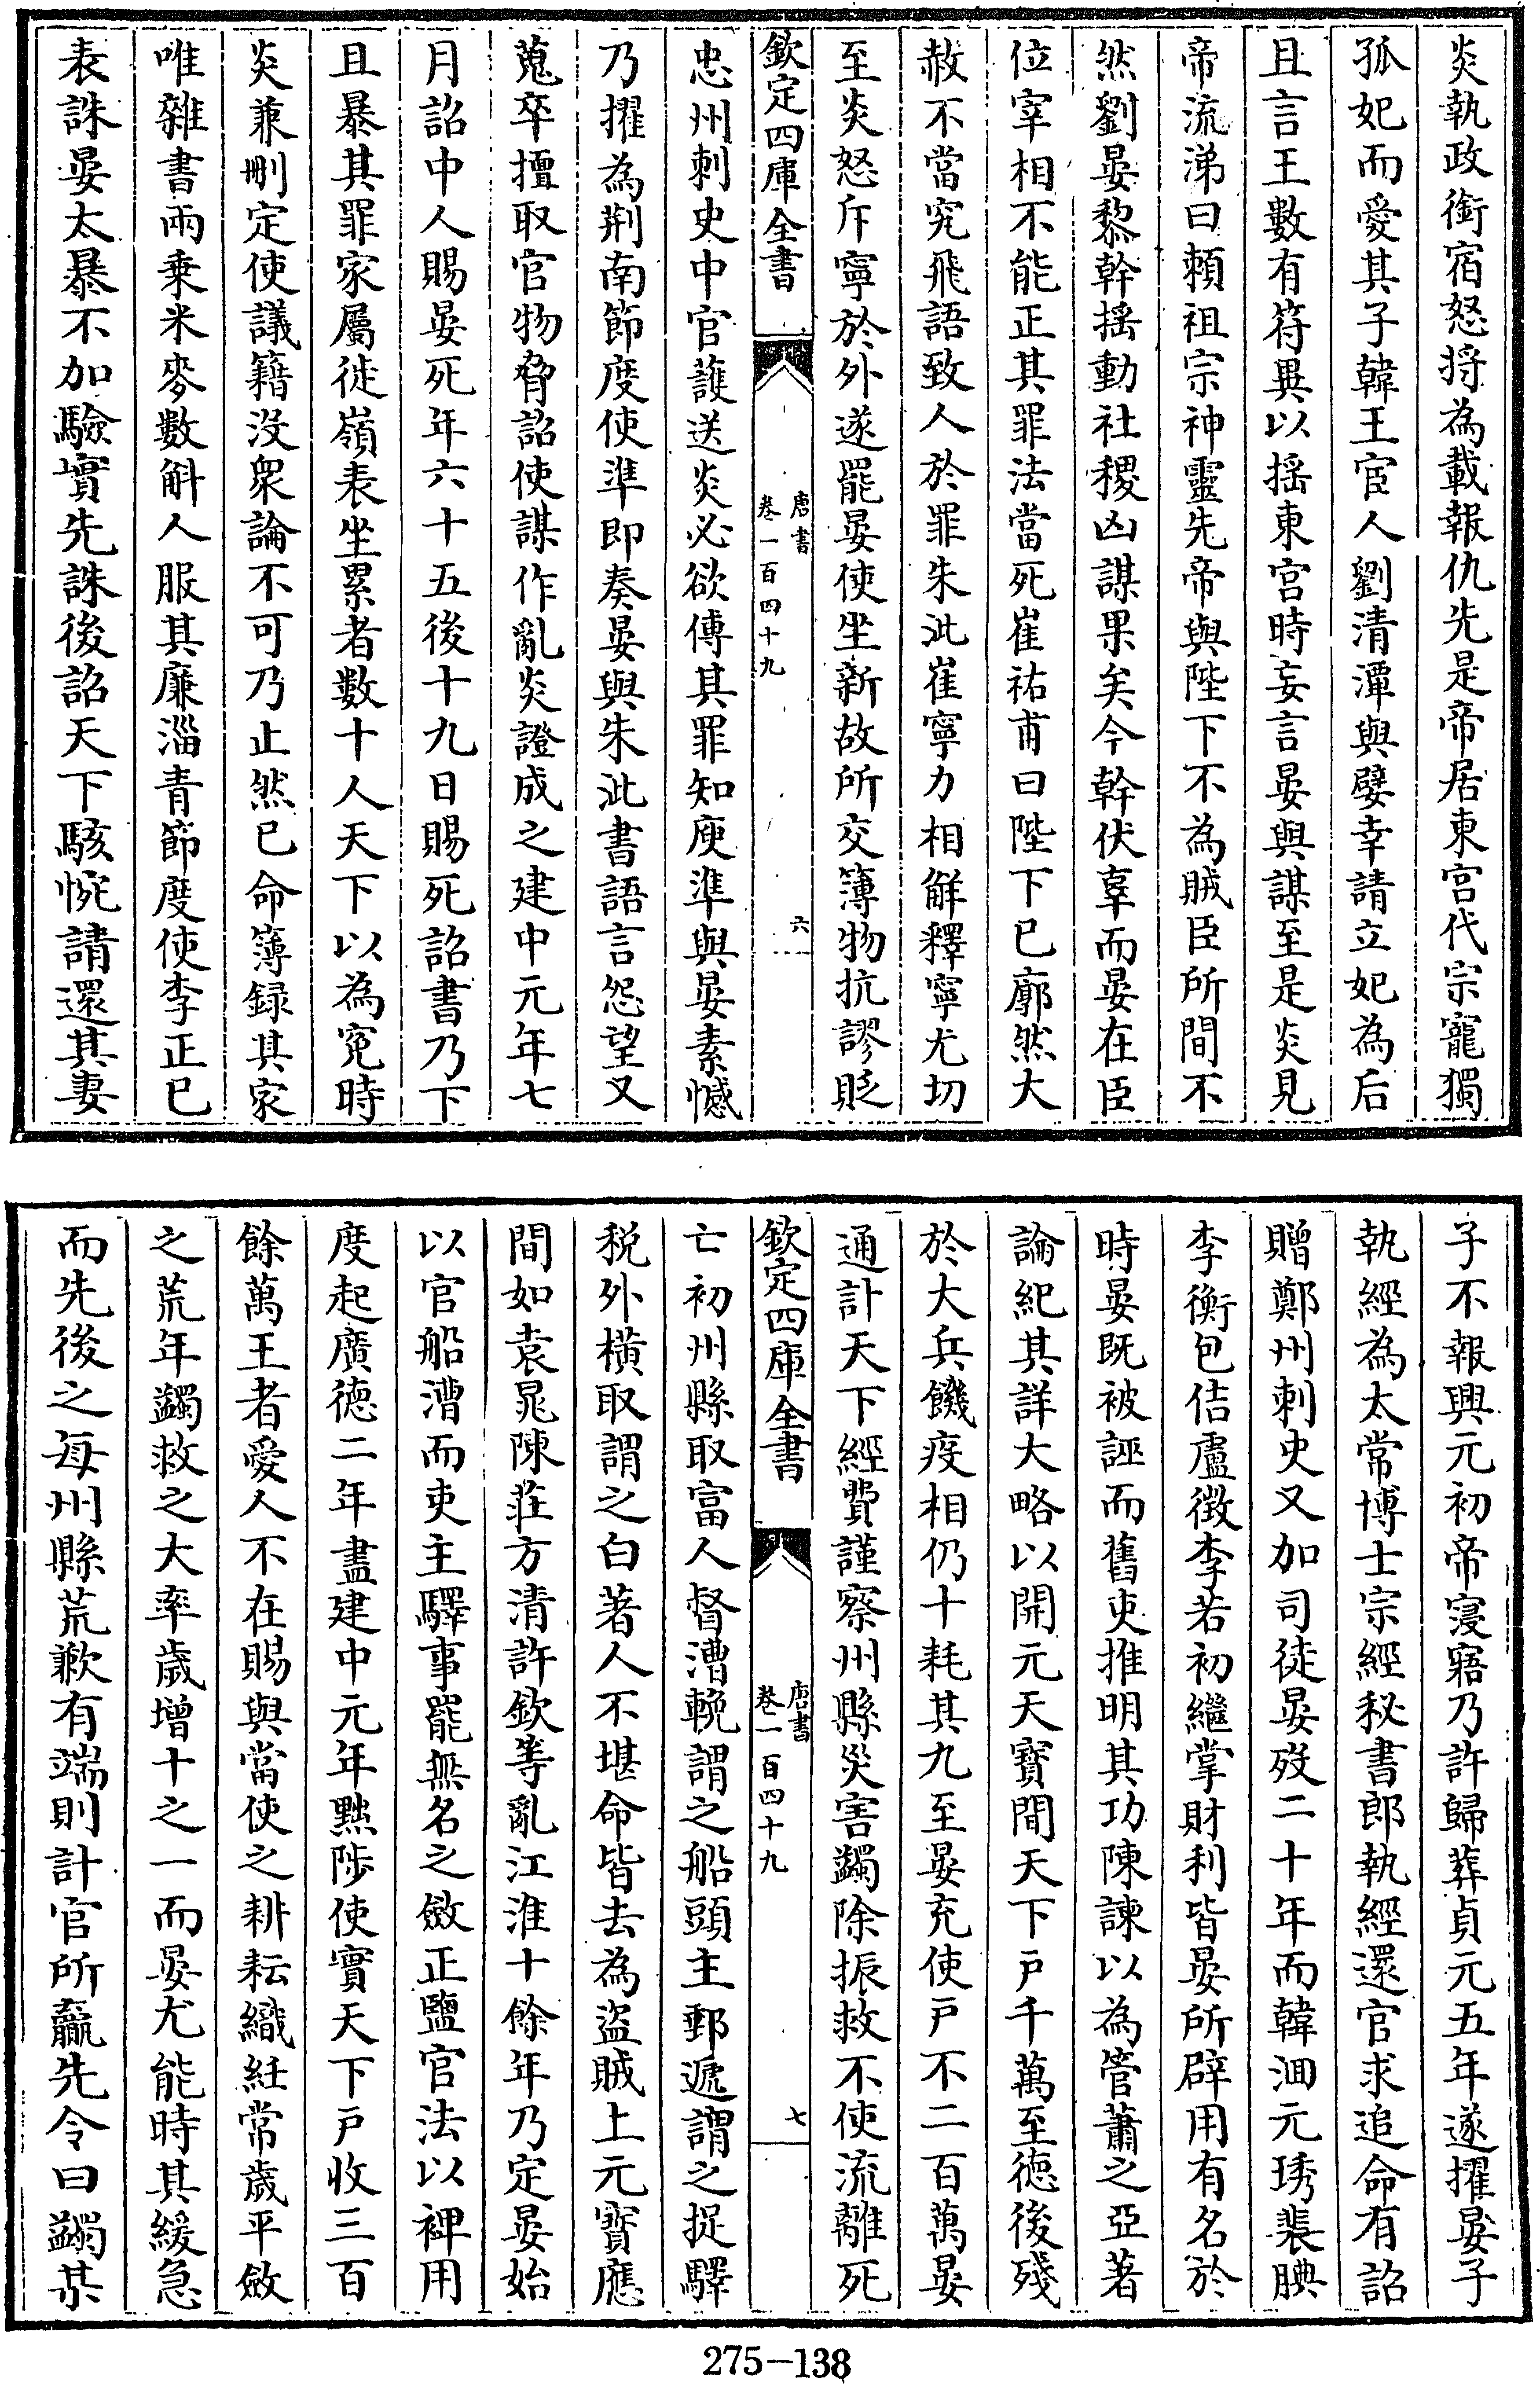 炎執政銜宿怒将為載報仇先是帝居東宫代宗寵獨
孤妃而愛其子韓王宦人劉清潭與嬖幸請立妃為后
且言王數有符異以揺東宫時妄言晏與謀至是炎見
帝流涕曰頼祖宗神靈先帝與陛下不為賊臣所間不
然劉晏黎幹揺動社稷凶謀果矣今幹伏辜而晏在臣
位宰相不能正其罪法當死崔祐甫曰陛下已廓然大
赦不當究飛語致人於罪朱泚崔寧力相解釋寧尤切
至炎怒斥寧於外遂罷晏使坐新故所交簿物抗謬貶
欽定四庫全書
唐書
卷一百四十九
六
忠州刺史中官護送炎必欲傅其罪知庾準與晏素憾
乃擢為荆南節度使準即奏晏與朱泚書語言怨望又
蒐卒擅取官物脅詔使謀作亂炎證成之建中元年七
月詔中人賜晏死年六十五後十九日賜死詔書乃下
且暴其罪家屬徙嶺表坐累者數十人天下以為寃時
炎兼刪定使議籍没衆論不可乃止然已命簿録其家
唯雜書兩乗米麥數斛人服其廉淄青節度使李正已
表誅晏太暴不加驗實先誅後詔天下駭惋請還其妻
子不報興元初帝寖寤乃許歸葬貞元五年遂擢晏子
執經為太常博士宗經秘書郎執經還官求追命有詔
贈鄭州刺史又加司徒晏歿二十年而韓洄元琇裴腆
李衡包佶盧徴李若初繼掌財利皆晏所辟用有名於
時晏既被誣而舊吏推明其功陳諫以為管蕭之亞著
論紀其詳大略以開元天寶間天下户千萬至徳後殘
於大兵饑疫相仍十耗其九至晏充使户不二百萬晏
通計天下經費謹察州縣災害蠲除振救不使流離死
欽定四庫全書
唐書
卷一百四十九
七
亡初州縣取富人督漕輓謂之船頭主郵遞謂之捉驛
税外横取謂之白著人不堪命皆去為盗賊上元寳應
間如袁晁陳莊方清許欽等亂江淮十餘年乃定晏始
以官船漕而吏主驛事罷無名之斂正鹽官法以裨用
度起廣徳二年盡建中元年黜陟使實天下户收三百
餘萬王者愛人不在賜與當使之耕耘織紝常歳平斂
之荒年蠲救之大率歳增十之一而晏尤能時其緩急
而先後之每州縣荒歉有端則計官所贏先令曰蠲某
275-138